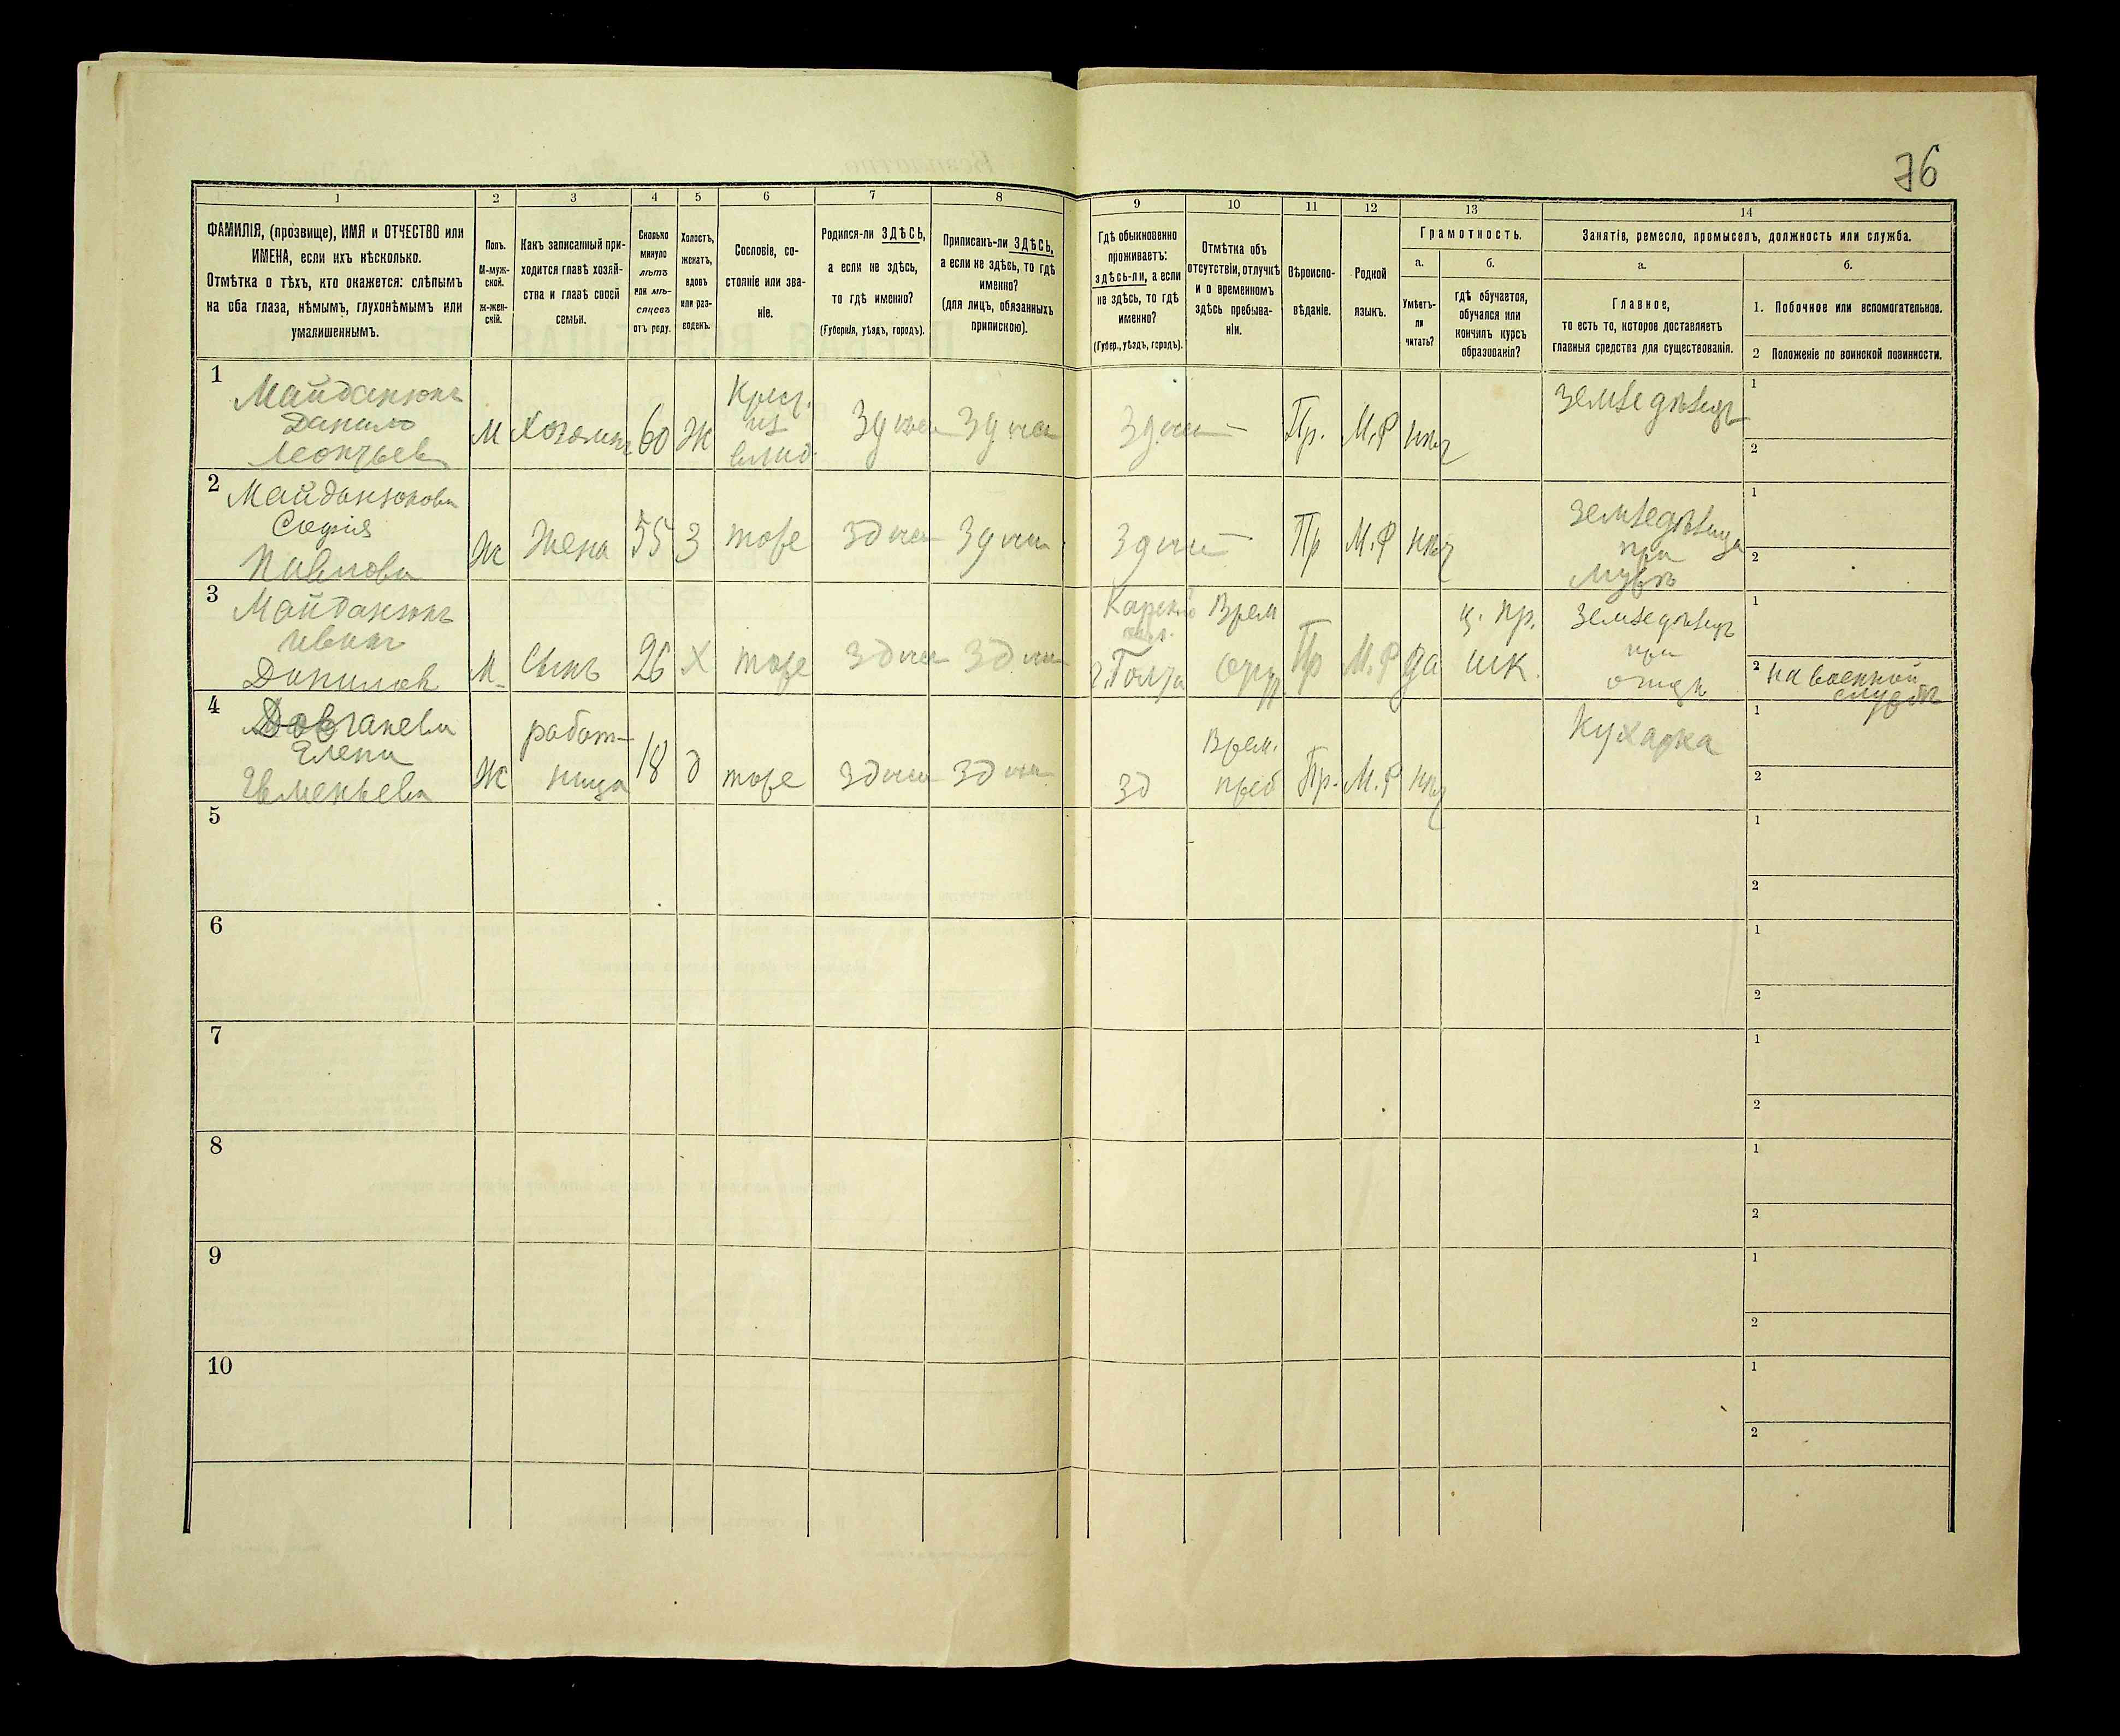 76
1 2 3 4 5 6 7 8 9 10 11 12 13 14
ФАМИЛІЯ, (прозвище), ИМЯ и ОТЧЕСТВО или
ИМЕНА, если ихъ нѣсколько.
Отмѣтка о тѣхъ, кто окажется: слѣпымъ
на оба глаза, нѣмымъ, глухонѣмымъ или
умалишеннымъ.
Полъ.
М-муж-
ской.
Ж-жен-
скій.
Какъ записанный при-
ходится главѣ хозяй-
ства и главѣ своей
семьи.
Сколько
минуло
лѣтъ
или мѣ-
сяцевъ
отъ роду.
Холостъ,
женатъ,
вдовъ
или раз-
веденъ.
Сословіе, со-
стояніе или зва-
ніе.
Родился-ли ЗДѢСЬ,
а если не здѣсь,
то гдѣ именно?
(Губернія, уѣздъ, городъ).
Приписанъ-ли ЗДѢСЬ,
а если не здѣсь, то гдѣ
именно?
(для лицъ, обязанныхъ
припискою).
Гдѣ обыкновенно
проживаетъ:
здѣсь-ли, а если
не здѣсь, то гдѣ
именно?
(Губер., уѣздъ, городъ).
Отмѣтка объ
отсутствіи, отлучкѣ
и о временномъ
здѣсь пребыва-
ніи.
Вѣроиспо-
вѣданіе.
Родной
языкъ.
Грамотность.
а.
Умѣетъ-
ли
читать?
б.
гдѣ обучается,
обучался или
кончилъ курсъ
образованія?
Занятіе, ремесло, промыселъ, должность или служба.
а.
Главное,
то есть то, которое доставляетъ
главныя средства для существованія.
б.
1. Побочное или вспомогательное.
2 Положеніе по воинской повинности.
1
Майданюкъ
Данило
Леонтьев
М Хозяинъ 60 Ж
Крест.
из
влад.
Здѣсь Здѣсь Здѣсь — Пр. М.Р нѣт
земледѣлецъ
1
2
2
Майданюкова
Софія
Павлова
Ж Жена 55 З тоже здѣсь Здѣсь Здѣсь — Пр М.Р нѣт
земледѣлица
при
мужѣ
1
2
3
Майданюкъ
Иванъ
Данилов
М Сынъ 26 Х тоже здѣсь здѣсь
Врем
отс
Пр М.Р да
ц. пр.
шк.
земледѣлецъ
при
отцѣ
1
2 на военной
службѣ
4
Елена
Евменьева
Ж
работ-
ница
18 д тоже здѣсь здѣсь зд
Врем.
преб
Пр. М.Р нѣт
Кухарка
1
2
5
1
2
6
1
2
7
1
2
8
1
2
9
1
2
10
1
2